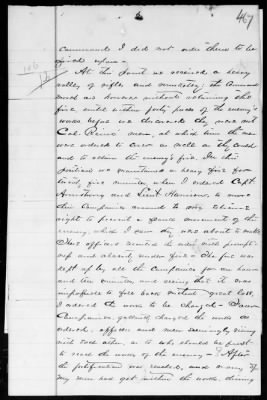 467
command I did not order them to be
fired upon—
At this point we received a heavy
volley of rifles and musketry; the command
moved on however without returning the
fire until within forty paces of the enemy's
works before we discovered they were not
Col. men, at which time the men
were ordered to cover as well as they could
and to return the enemy's fire. In this
position we maintained a heavy fire for
twenty five minutes when I ordered Capt.
Armstrong and Lieut. Harrison, to move
their companies around to my extreme
right to prevent a flank movement of the
enemy, which I saw they was about to make.
These officers executed the order with prompt-
ness and already under fire— The fire was
kept up by all the Companies for one hour
and ten minutes and seeing that it was
impossible to fall back without great loss,
I ordered the works to be charged—
Companies, gallantly charged the works as
ordered, officers and men seemingly vieing
with each other, as to who should be first
to reach the works of the enemy— After
the fortification was reached, and many of
my men had got within the works, driving